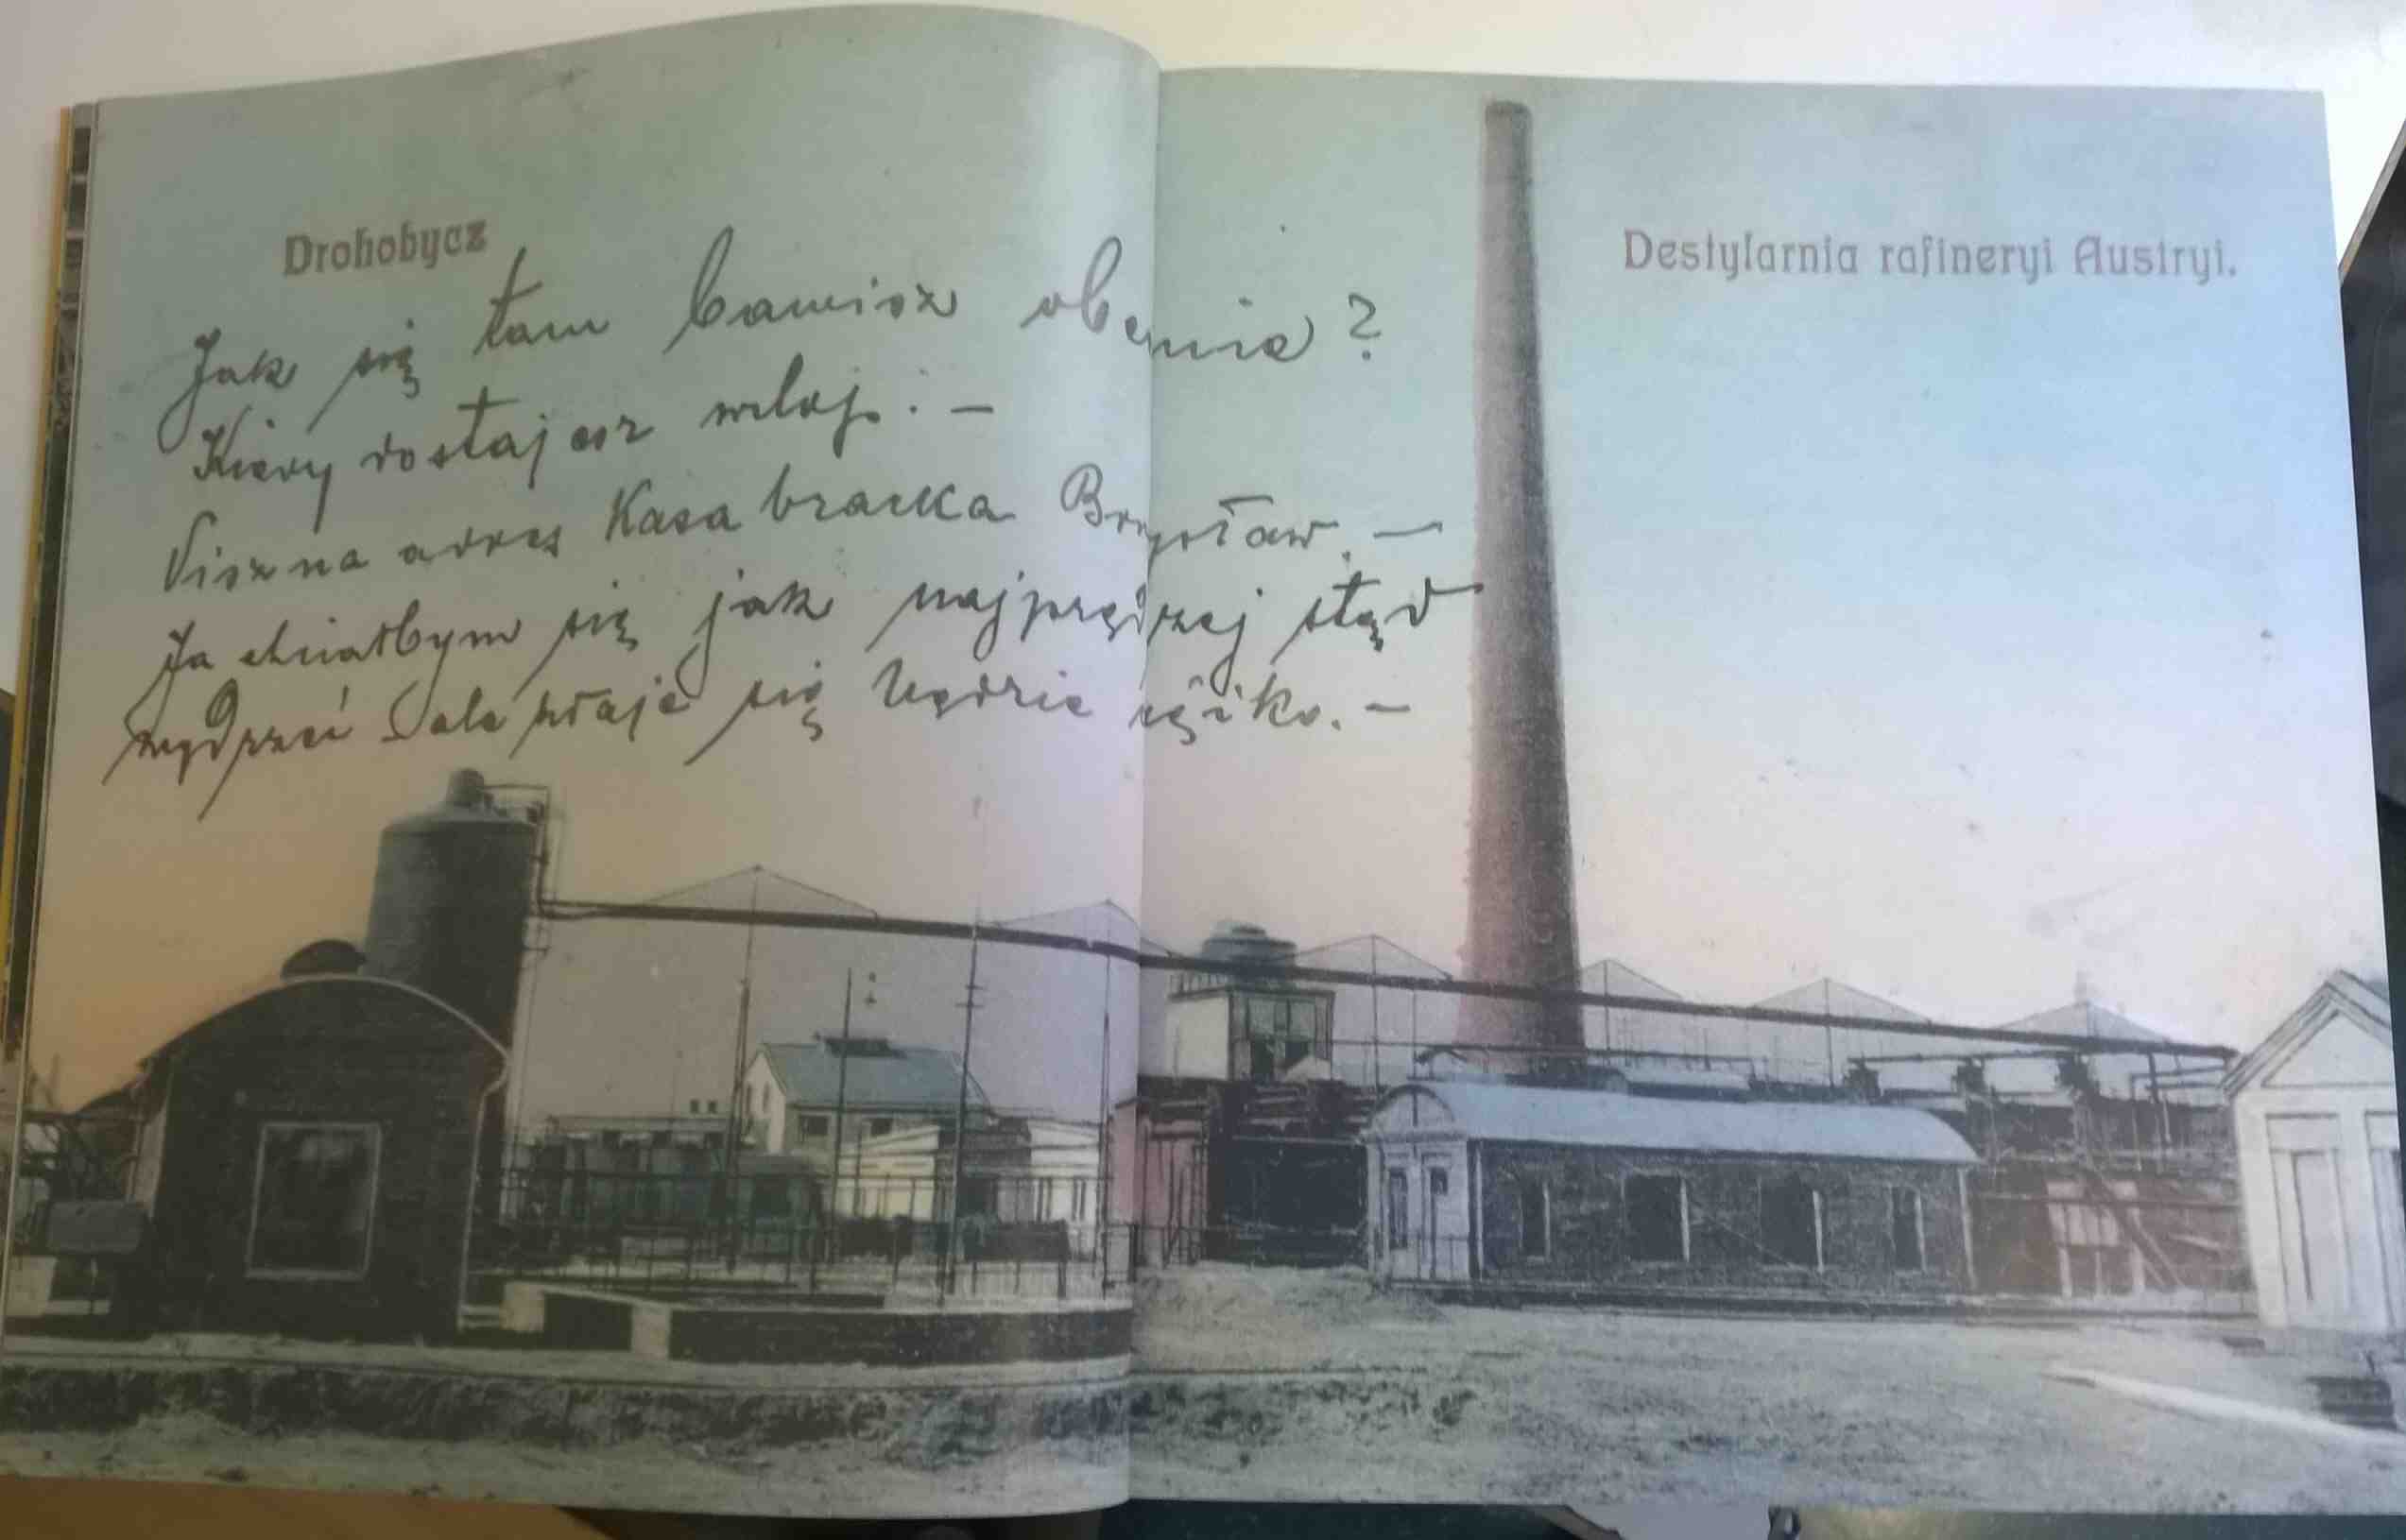 Drohobycz
Destylarnia rafineryi Austryi.
Jak się tam bawisz obecnie?
Kiedy dostajesz
Pisz na adres Kasa bracka Borysław. —
Ja chciałbym się jak najprędzej stąd
wydrzeć ale zdaje się będzie ciężko. —